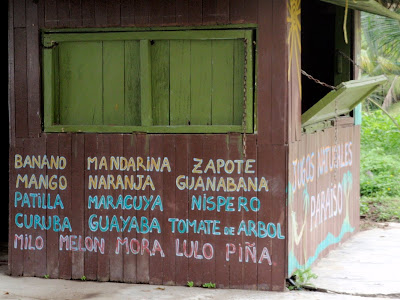 BANANO MANDARINA ZAPOTE
MANGO NARANJA GUANABANA
PATILLA MARACUYA NISPERO
CURUBA GUAYABA TOMATE DE ARBOL
MILO MELON MORA LULO PIÑA
JUGOS NATURALES
PARAISO